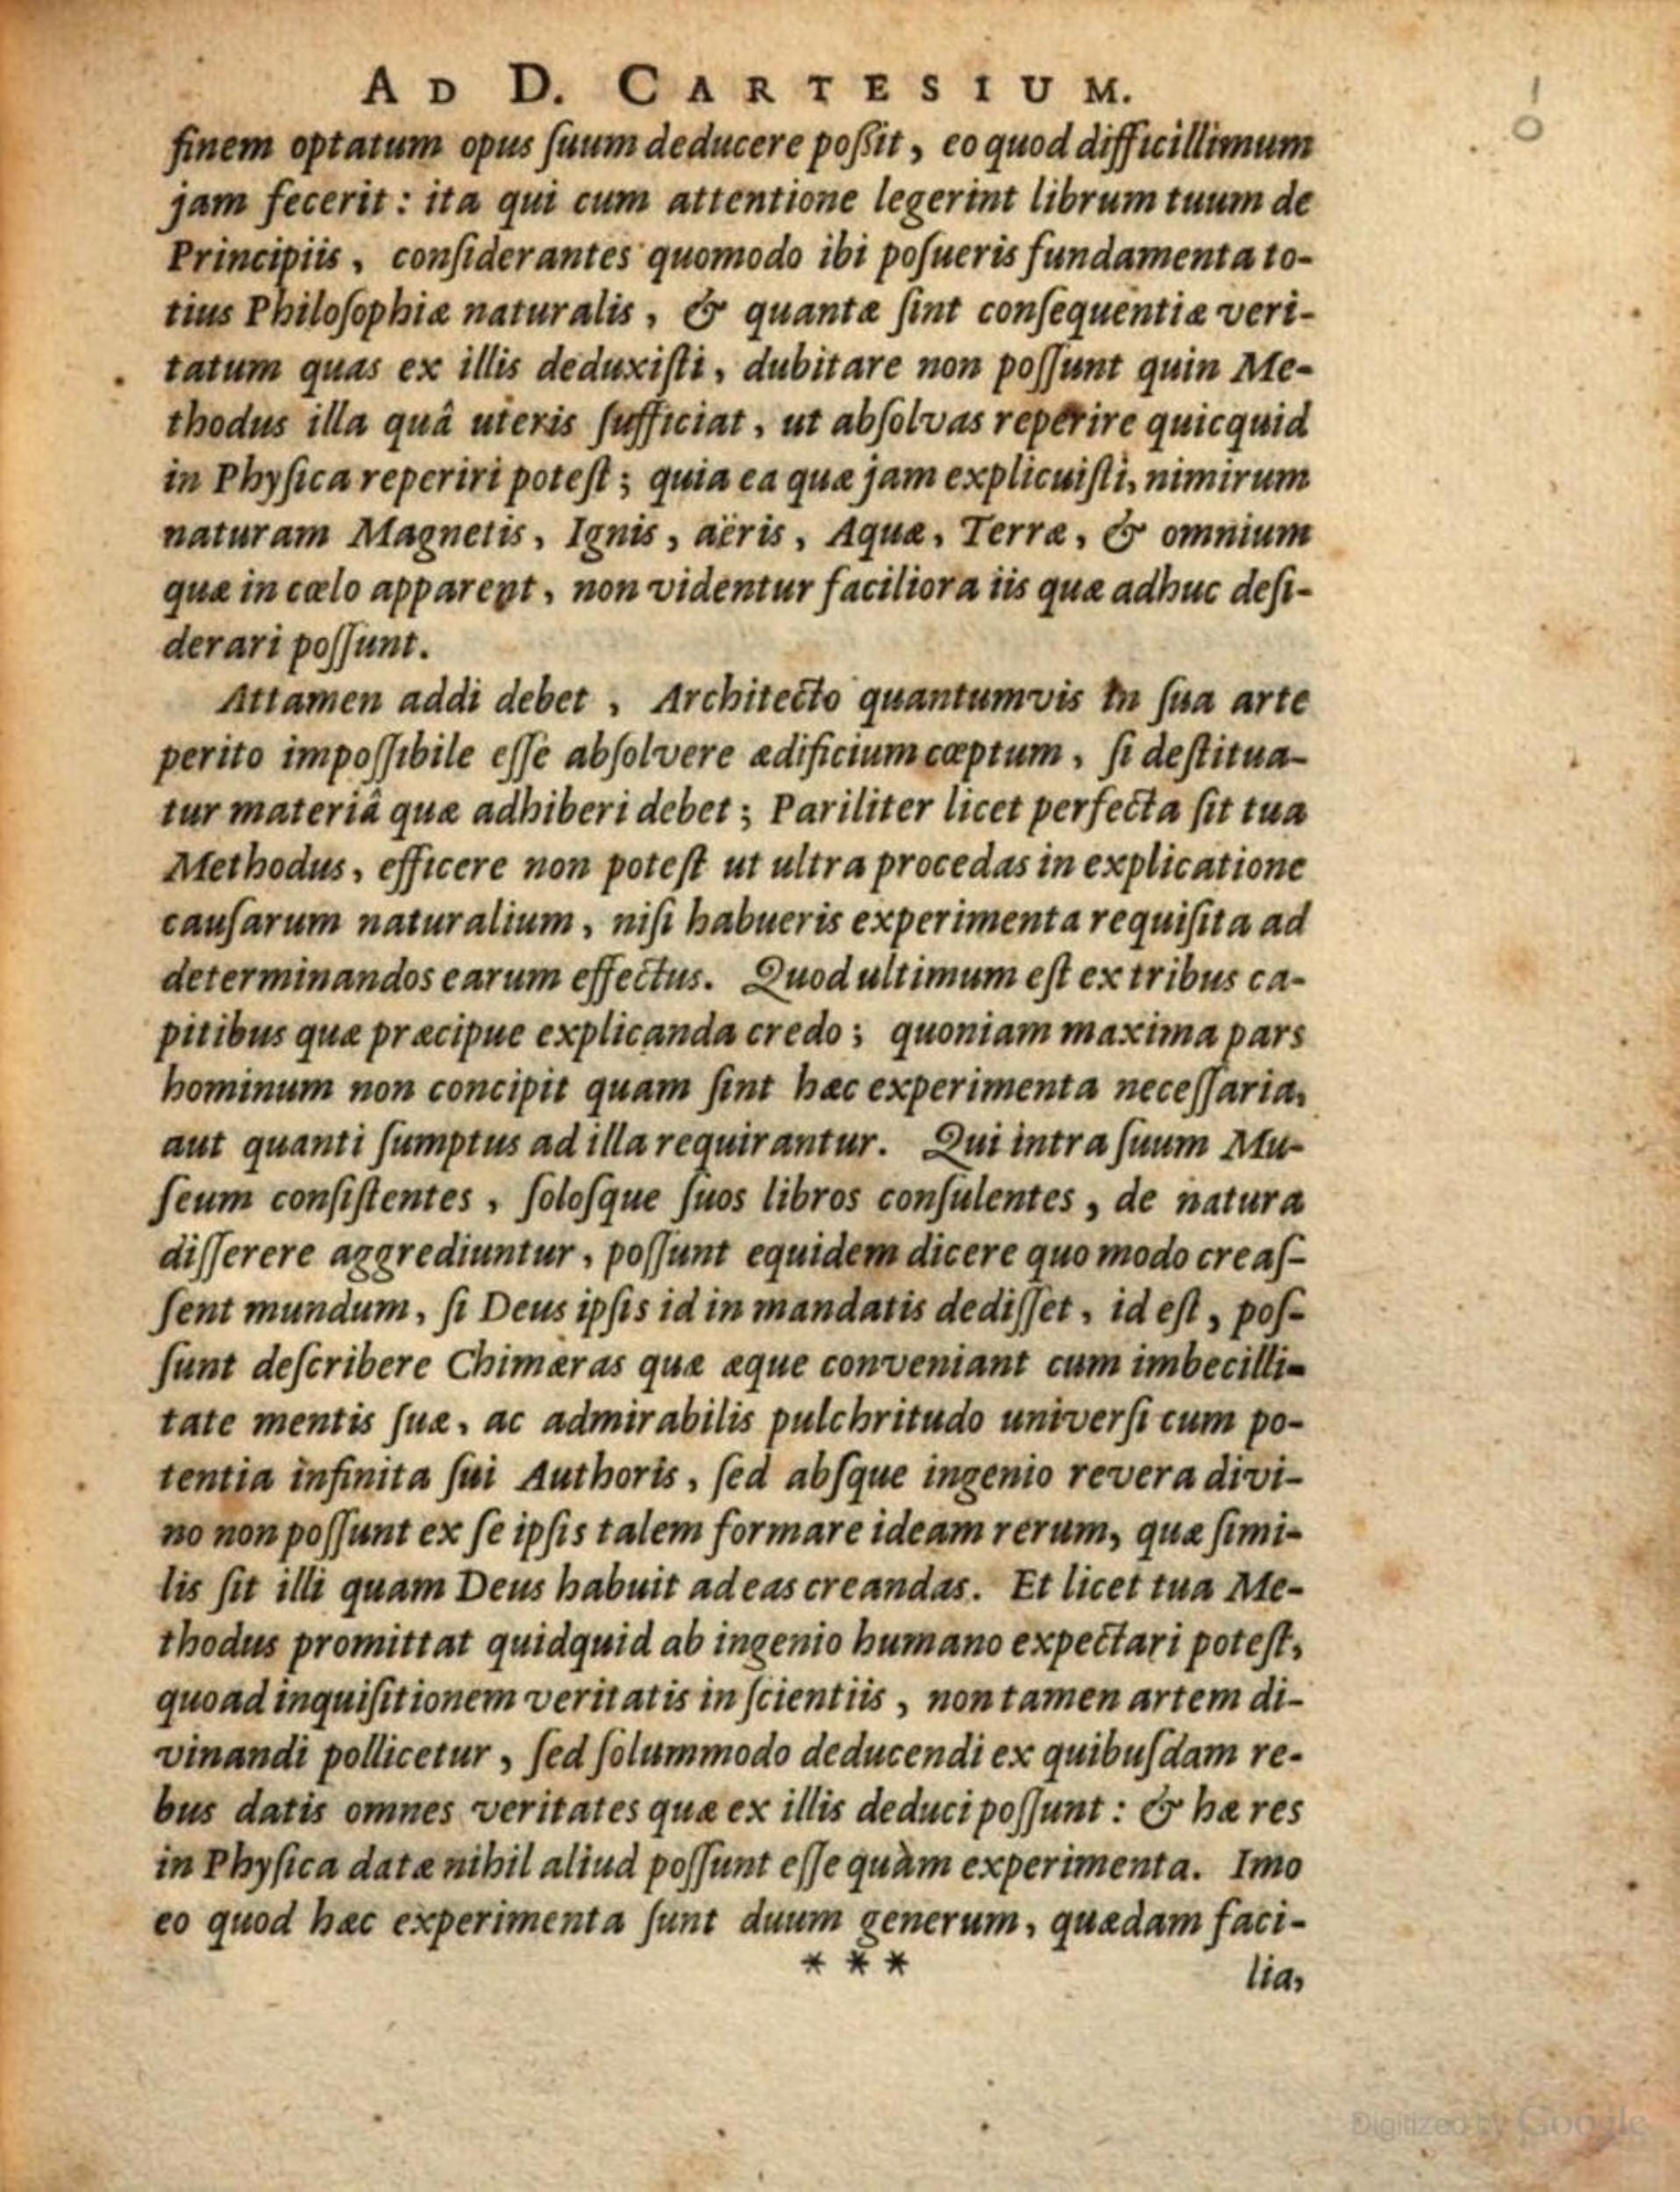 AD D. CARTESIUM.
finem optatum opus ſuum deducere poſſit, eo quod difficillimum
jam fecerit: ita qui cum attentione legerint librum tuum de
Principiis, conſiderantes quomodo ibi poſueris fundamenta to-
tius Philoſophiæ naturalis, & quantæ ſint conſequentiæ veri-
tatum quas ex illis deduxiſti, dubitare non poſſunt quin Me-
thodus illa quâ uteris ſufficiat, ut abſolvas reperire quicquid
in Phyſica reperiri poteſt; quia ea quæ jam explicuiſti, nimirum
naturam Magnetis, Ignis, aëris, Aquæ, Terræ, & omnium
quæ in cœlo apparent, non videntur faciliora iis quæ adhuc deſi-
derari poſſunt.
Attamen addi debet, Architecto quantumvis in ſua arte
perito impoſſibile eſſe abſolvere ædificium cœptum, ſi deſtitua-
tur materiâ quæ adhiberi debet; Pariliter licet perfecta ſit tua
Methodus, efficere non poteſt ut ultra procedas in explicatione
cauſarum naturalium, niſi habueris experimenta requiſita ad
determinandos earum effectus. Quod ultimum eſt ex tribus ca-
pitibus quæ præcipue explicanda credo; quoniam maxima pars
hominum non concipit quam ſint hæc experimenta neceſſaria,
aut quanti ſumptus ad illa requirantur. Qui intra ſuum Mu-
ſeum conſiſtentes, ſoloſque ſuos libros conſulentes, de natura
diſſerere aggrediuntur, poſſunt equidem dicere quo modo creaſ-
ſent mundum, ſi Deus ipſis id in mandatis dediſſet, id eſt, poſ-
ſunt deſcribere Chimæras quæ æque conveniant cum imbecilli-
tate mentis ſuæ, ac admirabilis pulchritudo univerſi cum po-
tentia infinita ſui Authoris, ſed abſque ingenio revera divi-
no non poſſunt ex ſe ipſis talem formare ideam rerum, quæ ſimi-
lis ſit illi quam Deus habuit ad eas creandas. Et licet tua Me-
thodus promittat quidquid ab ingenio humano expectari poteſt,
quoad inquiſitionem veritatis in ſcientiis, non tamen artem di-
vinandi pollicetur, ſed ſolummodo deducendi ex quibuſdam re-
bus datis omnes veritates quæ ex illis deduci poſſunt: & hæ res
in Phyſica datæ nihil aliud poſſunt eſſe quàm experimenta. Imo
eo quod hæc experimenta ſunt duum generum, quædam faci-
* * *
lia,
Digitized by Google